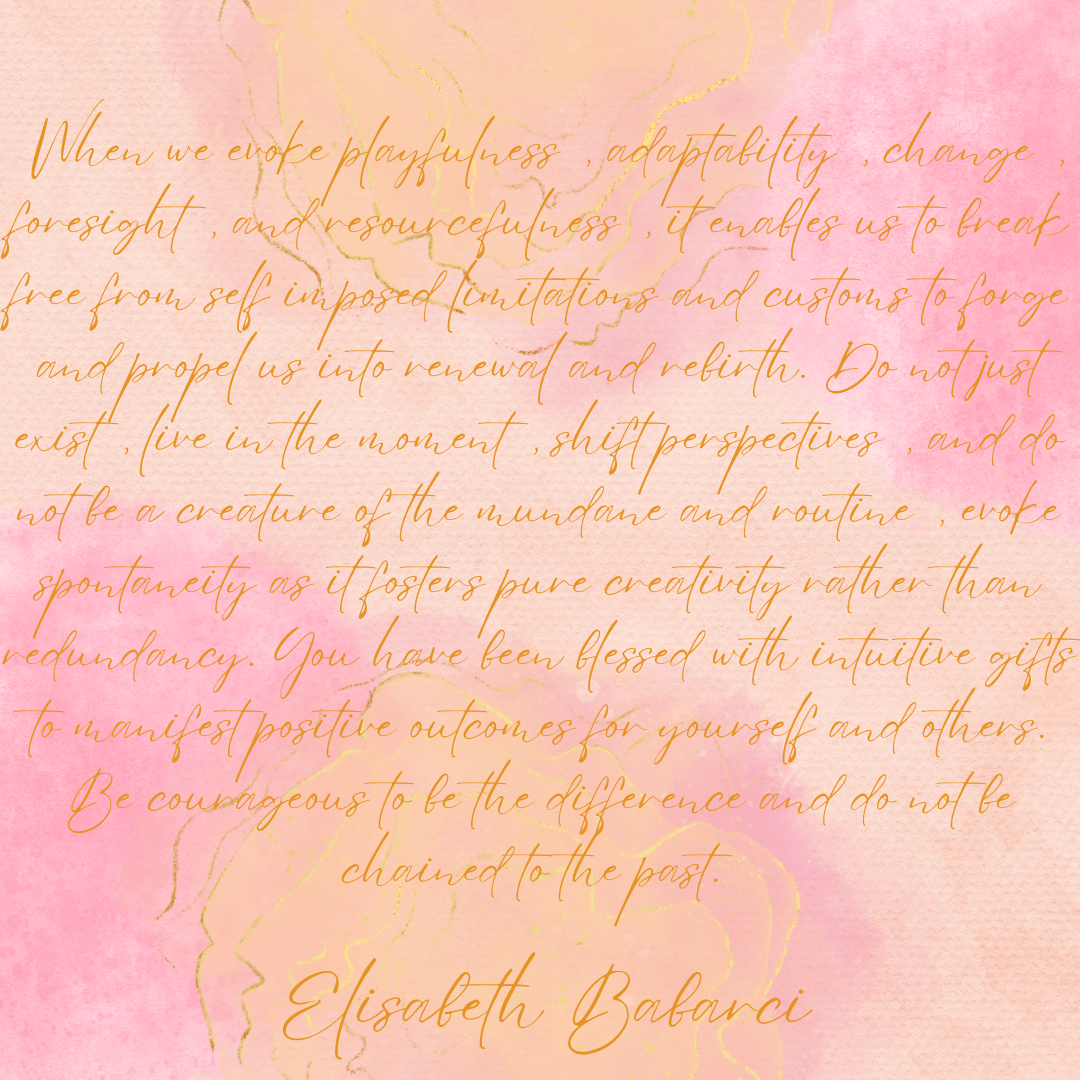 When we evoke playfulness , adaptability , change ,
foresight , and resourcefulness , it enables us to break
free from self imposed limitations and customs to forge
and propel us into renewal and rebirth. Do not just
exist , live in the moment , shift perspectives , and do
not be a creature of the mundane and routine , evoke
spontaneity as it fosters pure creativity rather than
redundancy. You have been blessed with intuitive gifts
to manifest positive outcomes for yourself and others.
Be courageous to be the difference and do not be
chained to the past.
Elisabeth Babarci